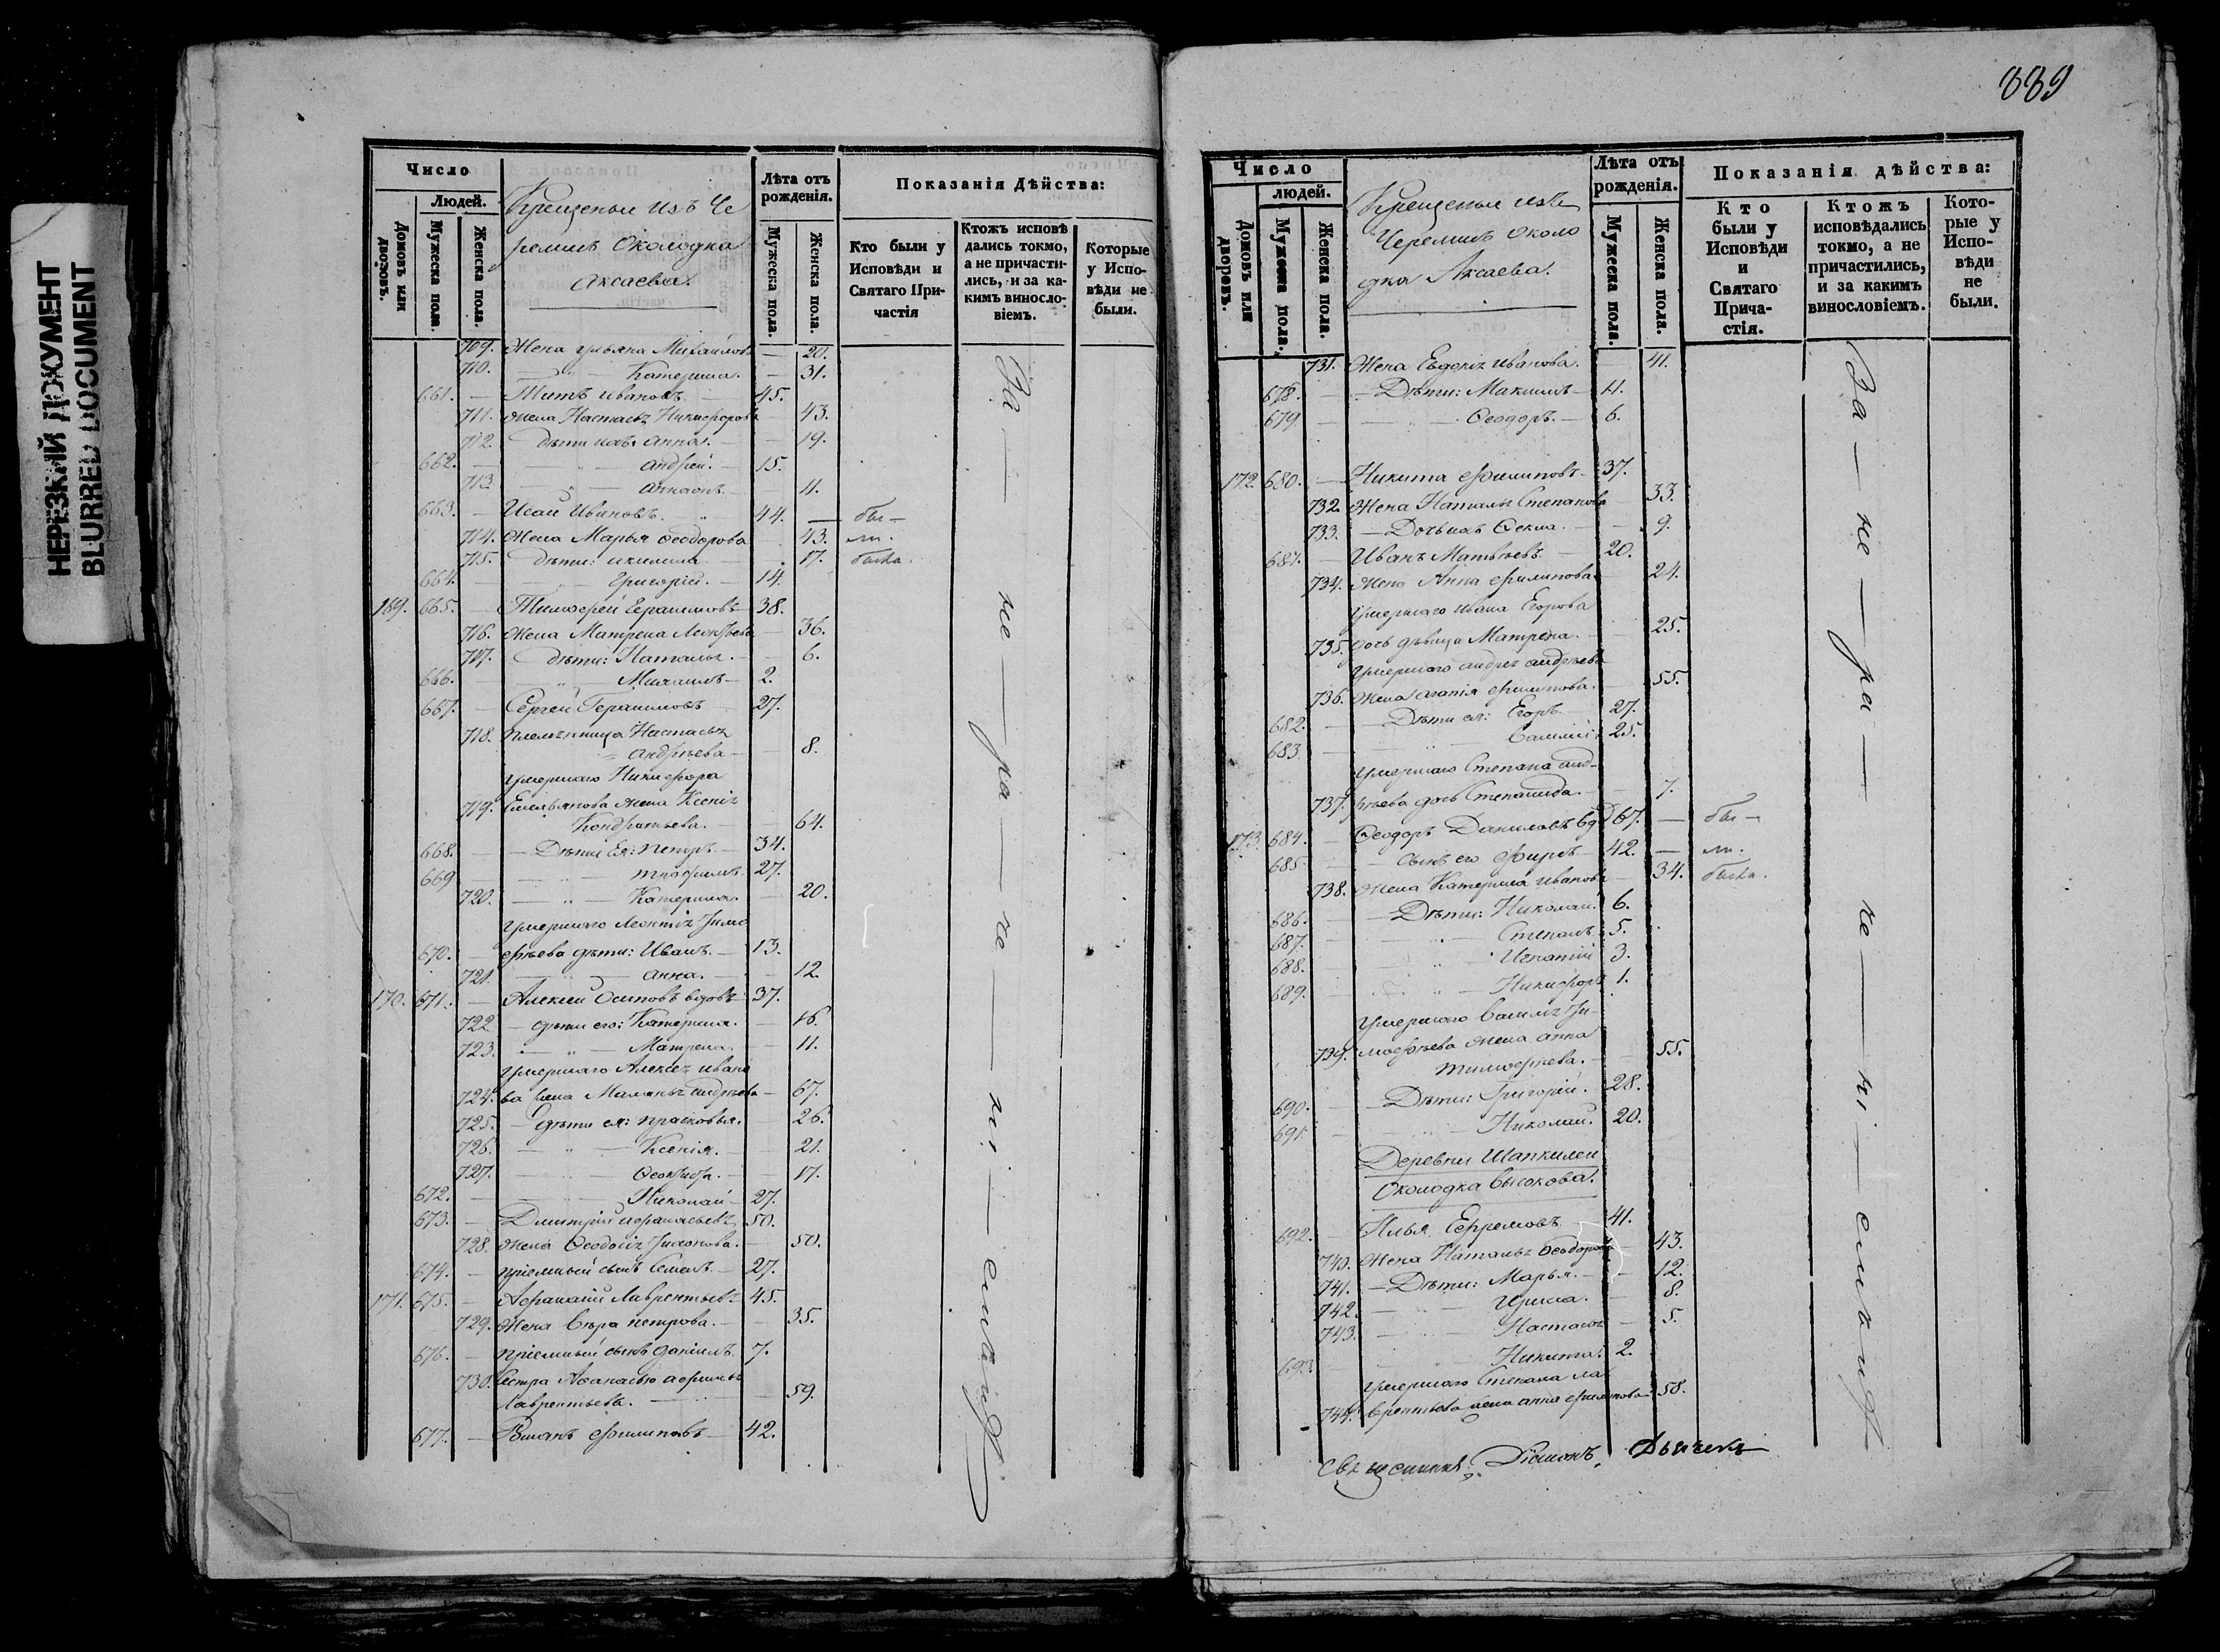 НЕРЕЗКИЙ ДОКУМЕНТ
BLURRED DOCUMENT
Число
Людей.
Домовъ или дворовъ.
Мужеска пола.
Женска пола.
Крещеныи изъ Че
ремисъ Околодка
Аксаева.
Лѣта отъ рожденія.
Мужеска пола.
Женска пола.
Показанія Дѣйства:
Кто были у Исповѣди и Святаго Причастія
Ктожъ исповѣдались токмо, а не причастились, и за какимъ винословіемъ.
Которые у Исповѣди не были.
709. Жена Ульяна Михайлова — 20.
710. — " — Катерина. — 31.
661. — Титъ Ивановъ. — 45.
711. Жена Настасья Никифорова 43.
712. дѣти ихъ: Анна. — 19.
662. — " — Андрей. — 15.
713. — " — 11.
663. — Исай Ивановъ. " 44. — бы —
714. Жена Марья Феодорова 43. ли.
715. дѣти: Акилина 17. бысва.
664. — " — Григорій. — 14.
169. 665. — Тимофей Герасимовъ 38.
716. Жена Матрена Леонтьева 36.
717. дѣти: Наталья. — 6.
666. — " — Михаилъ — 2.
667. — Сергей Герасимовъ 27.
718. Племянница Настасья
Андреева — 8.
Умершаго Никифора
719. Емельянова жена Ксенія
Кондратьева. — 64.
668. — Дѣти Ея: Петръ. — 34.
669 — " — Трофимъ. 27.
720. — " — Катерина. — 20.
Умершаго Леонтія Тимо
670. — феева дѣти: Иванъ. — 13.
721. — " — Анна. — 12.
170. 671. — Алексей Осиповъ вдовъ 37.
722 — дѣти его: Катерина. — 16.
723. — " — Матрена. — 11.
Умершаго Алексея Ивано
724. ва жена Андреева — 67.
725. — дѣти ея: Прасковья. — 26.
726. — " — Ксенія. — 21.
727. — " — 17.
672. — Николай — 27.
673. — Дмитрій Афанасьевъ 50.
728. Жена Феодосія 50.
674. — пріемный сынъ Семенъ. — 27.
171. 675. — Афанасій Лаврентьевъ 45.
729. Жена Вѣра Петрова. — 35.
676. — пріемный сынъ Даніилъ. 7.
730. Сестра
Лаврентьева. — 59.
677. — Филиповъ — 42.
За — не — ра — че — ні — емъ
889
Число
людей.
Домовъ или дворовъ.
Мужеска пола.
Женска пола.
Крещеныи изъ
Черемисъ Околo
дка Аксаева.
Лѣта отъ рожденія.
Мужеска пола.
Женска пола.
Показанія дѣйства:
Кто были у Исповѣди и Святаго Причастія.
Ктожъ исповѣдались токмо, а не причастились, и за какимъ винословіемъ.
Которые у Исповѣди не были.
731. Жена Евдокія Иванова. — 41.
678. — Дѣти: Максимъ — 11.
679 — " — Феодоръ. — 6.
172. 680. — Никита Филиповъ. 37.
732. Жена Наталья Степанова 33.
733. — Дочь ихъ Фекла. — 9.
681. — Иванъ Матвѣевъ. — 20.
734. Жена Анна Филипова 24.
Умершаго Ивана Егорова
735. дочь дѣвица Матрена. — 25.
Умершаго Андрея Андреева
736. Жена Агапія Филипова. 55.
682. — Дѣти ея: Егоръ. — 27.
683 — Василій. 25.
Умершаго Степана Анд-
737. реева дочь Степанида. — 7.
173. 684. — Феодоръ Даниловъ вд 67. — бы —
685 — сынъ его 42. — ли.
738. Жена Катерина Иванова 34. бысва.
686. — Дѣти: Николай. 6.
687. — " — Степанъ. 5.
688. — " — Игнатій 3.
689. — " — Никифоръ 1.
Умершаго Василья Ти-
739. мофеева жена Анна
Тимофеева. — 55.
690. — Дѣти: Григорій. 28.
691. — Николай. 20.
Деревни Шапкилеи
Околодка Высокова.
692. — Илья Ефремовъ. 41.
740. Жена Наталья Феодорова 43.
741. — Дѣти: Марья. — 12.
742. — " — Ирина. — 8.
743. — " — Настасья — 5.
693. — Никита. 2.
Умершаго Степана Ла
744. врентьева жена Анна Филипова 58.
За — не — ра — че — ні — емъ
Священникъ Дьячекъ